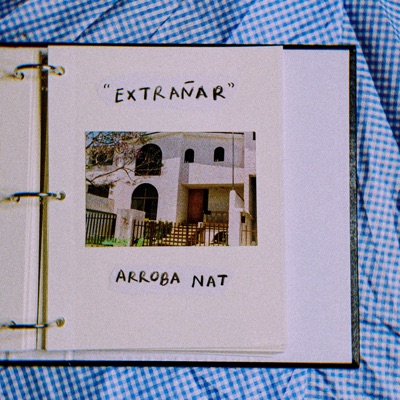 “EXTRAÑAR”
ARROBA NAT